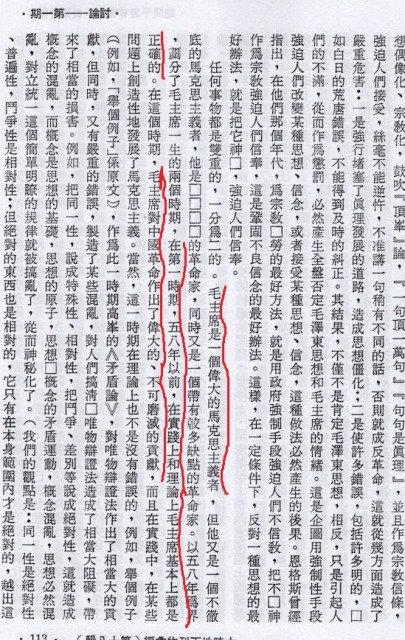 討論——第一期．
想偶像化、宗教化，鼓吹『頂峯』論，『一句頂一萬句』『句句是眞理』，並且作爲宗教信條，
強迫人們接受，絲毫不能逆忤，不准講一句稍有不同的話，否則就成反革命，這就從幾方面造成了
嚴重危害：一是強行堵塞了眞理發展的道路，造成思想僵化；二是使許多錯誤，包括許多明的，□
如白日的荒唐錯誤，不能得到及時的糾正。其結果，不僅不是肯定毛澤東思想，相反，只是引起人
們的不滿，從而作爲懲罰，必然產生全盤否定毛澤東思想和毛主席的情緒。這是企圖用強制性手段
強迫人們改變某種思想、信念，或者接受某種思想、信念，這種做法必然產生的後果。恩格斯曾經
指出，在他們那個年代，爲宗教□勞的最好方法，就是用政府強制手段強迫人們不信教，把不□神
作爲宗教強迫人們信奉，這是鞏固不良信念的最好辦法。這樣，在一定條件下，反對一種思想的最
好辦法，就是把它神□，強迫人們信奉。
任何事物都是雙重的，一分爲二的。毛主席是一個偉大的馬克思主義者，但他又是一個不徹
底的馬克思主義者，他是□□□□的革命家，同時又是一個帶有較多缺點的革命家。以五八年爲界
，劃分了毛主席一生的兩個時期，在第一時期，五八年以前，在實踐上和理論上毛主席基本上都是
正確的。在這個時期，毛主席對中國革命作出了偉大的、不可磨滅的貢獻，而且在實踐中，在某些
問題上創造性地發展了馬克思主義。當然，這一時期在理論上也不是沒有錯誤的，例如，舉個例子
（例如，「舉個例子」係原文）作爲此一時期高峯的《矛盾論》，對唯物辯證法作出了相當大的貢
獻，但同時，又有嚴重的錯誤，製造了某些混亂，對人們搞淸□唯物辯證法造成了相當大阻礙，帶
來了相當的損害。例如，把同一性，說成特殊性、相對性，把鬥爭、差別等說成絕對性，這就造成
概念的混亂，而概念是思想的基礎，思想的原子，思想□概念的矛盾運動，概念混亂，思想必然混
亂，對立統一這個簡單明瞭的規律就被搞亂了，從而神秘化了。（我們的觀點是：同一性是絕對性
、普遍性，鬥爭性是相對性；但絕對的東西也是相對的，它只有在本身範圍內才是絕對的，越出這
．113．